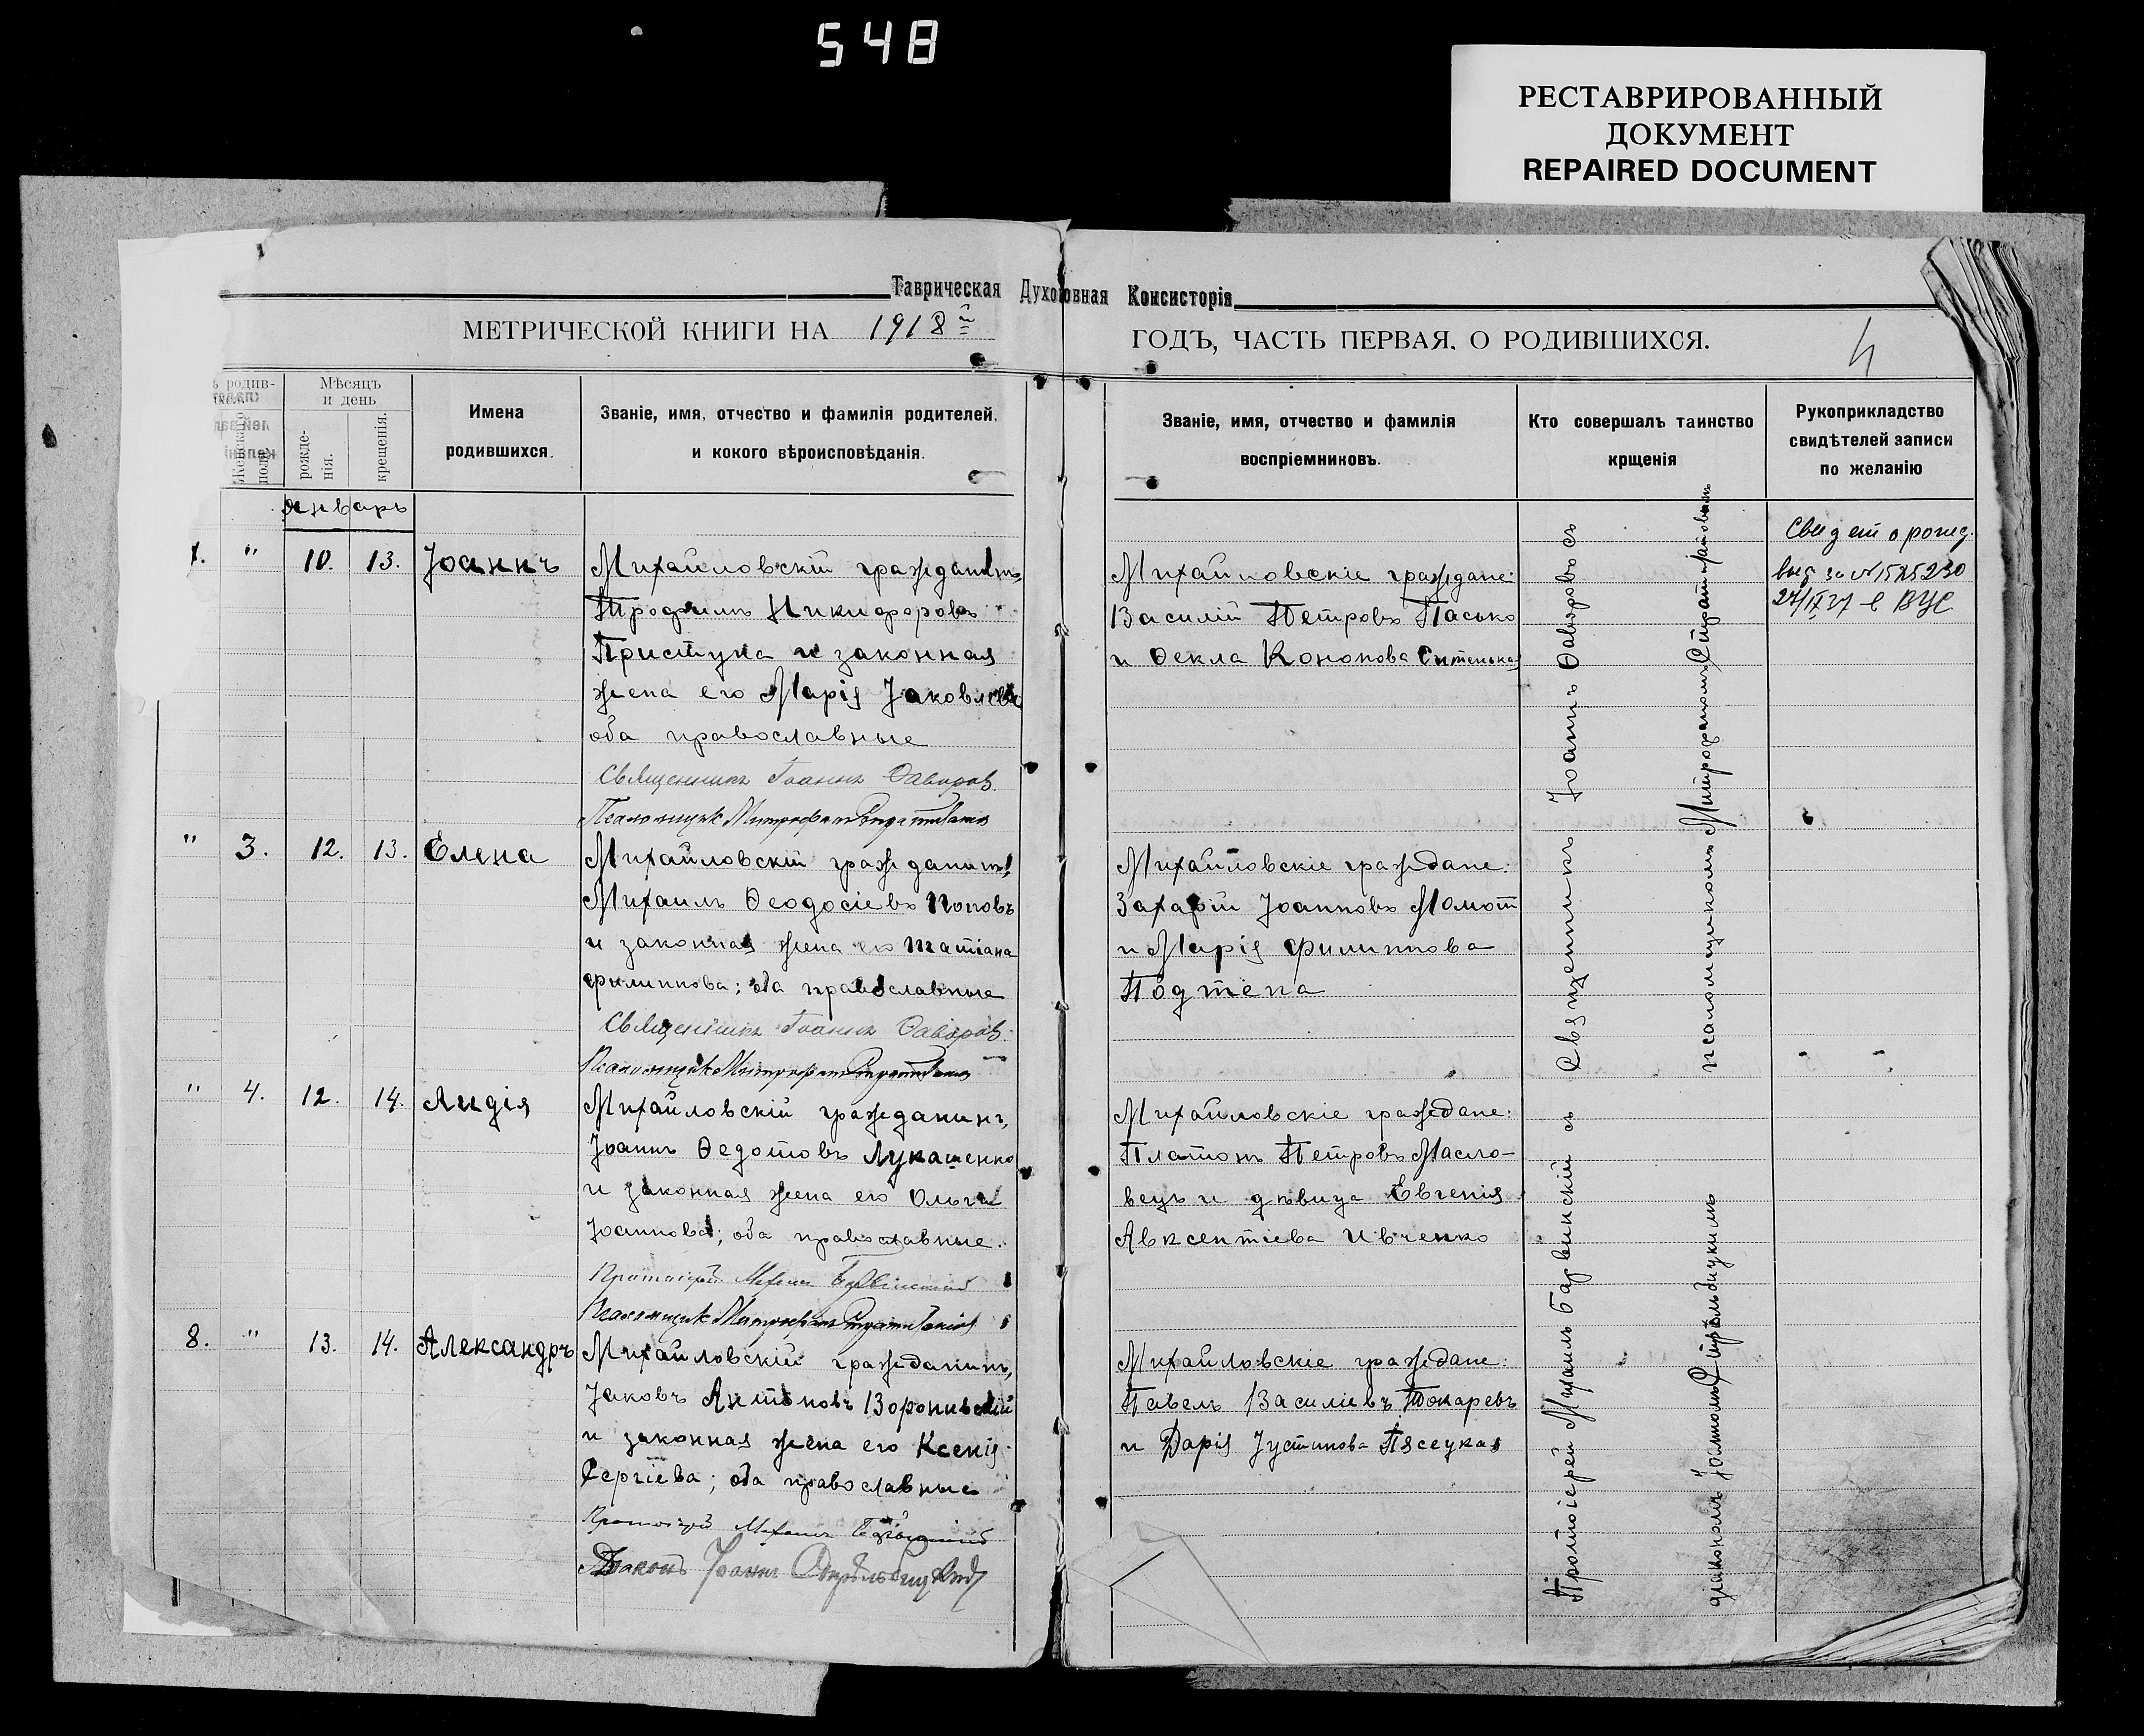 548
РЕСТАВРИРОВАННЫЙ
ДОКУМЕНТ
REPAIRED DOCUMENT
Таврическая Духовная Консисторія
МЕТРИЧЕСКОЙ КНИГИ НА 1918й
ГОДЪ, ЧАСТЬ ПЕРВАЯ. О РОДИВШИХСЯ.
4
родив-
Женскаго
пола.
Мѣсяцъ
и день
рожде-
нія.
крещенія.
Имена
родившихся.
Званіе, имя, отчество и фамилія родителей,
и кокого вѣроисповѣданія.
Званіе, имя, отчество и фамилія
воспріемниковъ.
Кто совершалъ таинство
крщенія
Рукоприкладство
свидѣтелей записи
по желанію
Январь
7. " 10. 13. Іоаннъ
Михайловскій гражданинъ,
Трофимъ Никифоровъ
Приступа и законная
жена его Марія Іаковлева
оба православные
Священникъ Іоаннъ Ѳаворовъ.
Псаломщикъ Митрофанъ
Михайловскіе граждане:
Василій Петровъ Пасько
и Ѳекла Кононова
Свидет о рожд.
выд за №
27/IX 37 в ВУС
" 3. 12. 13. Елена
Михайловскій гражданинъ,
Михаилъ Ѳеодосіевъ Поповъ
и законная жена его Татіана
Филиппова; оба православные
Священникъ Іоаннъ Ѳаворовъ.
Псаломщикъ Митрофанъ
Михайловскіе граждане:
Захарій Іоанновъ Момот
и Марія Филиппова
Подтепа
Священникъ Іоаннъ Ѳаворовъ съ
псаломщикомъ Митрофаномъ
" 4. 12. 14. Лидія
Михайловскій гражданинъ,
Іоаннъ Ѳедотовъ Лукашенко
и законная жена его Ольга
Іоаннова; оба православные.
Протоіерей Михаилъ Барвинскій
Псаломщикъ Митрофанъ
Михайловскіе граждане:
Платонъ Петровъ Масло-
вецъ и дѣвица Евгенія
Авксентіева Ивченко
8. " 13. 14. Александръ
Михайловскій гражданинъ,
Іаковъ Антоновъ
и законная жена его Ксенія
Сергіева; оба православные
Протоіерей Михаилъ Барвинскій
Діаконъ Іоаннъ Стрѣльбицкій
Михайловскіе граждане:
Павелъ Василіевъ Токаревъ
и Дарія Іустинова Пясецкая
Протоіерей Михаилъ Барвинскій съ
діакономъ Іоанномъ Стрѣльбицкимъ